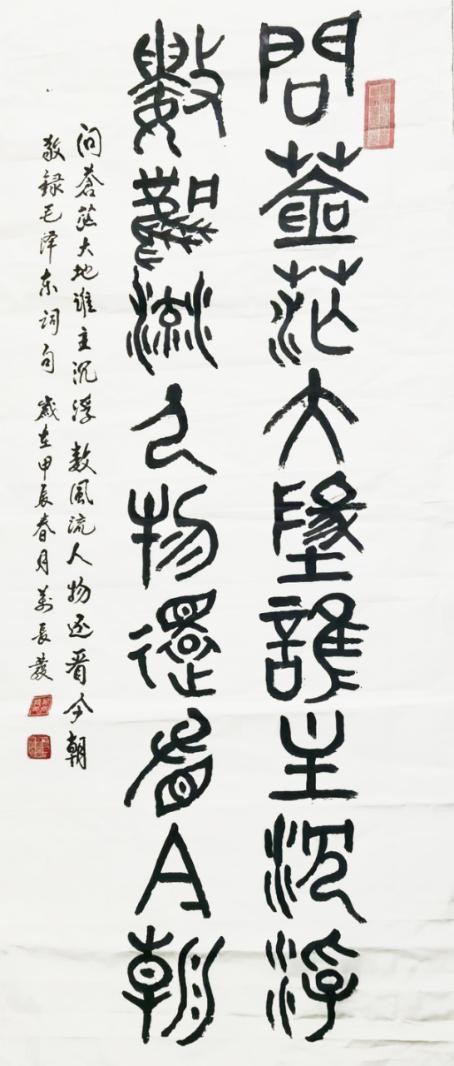 問蒼茫大墬誰主沉浮
數風流人物還看今朝
问蒼茫大地谁主沉浮 数風流人物还看今朝
敬録毛泽东词句 歲在甲辰春月 長發